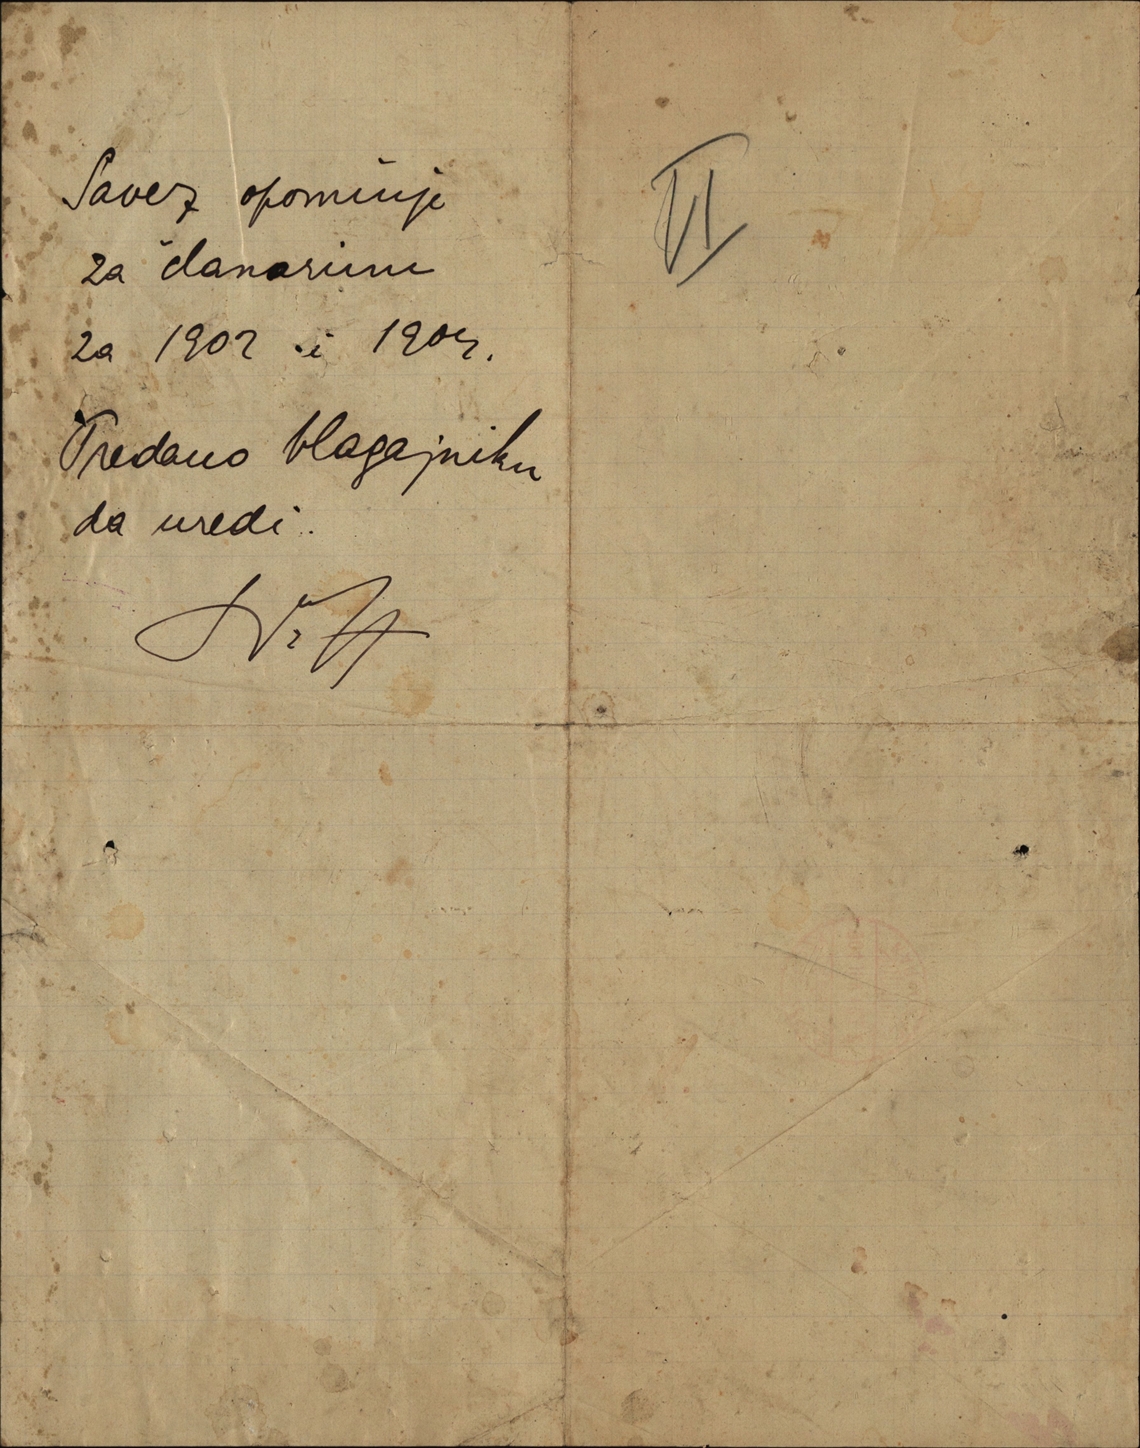 Savez opominje
za članarinu
za 1907 i 1904.
Predano blagajniku
da uredi.
VI